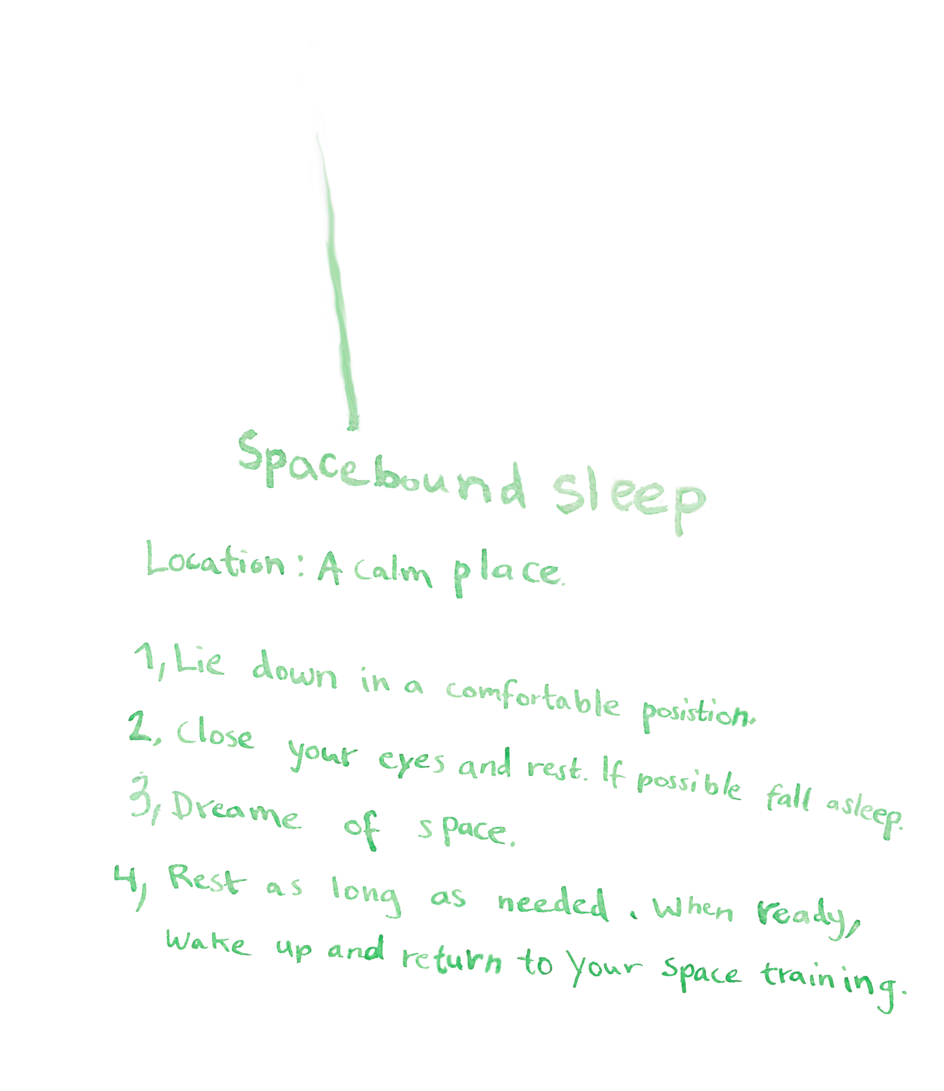 Spacebound sleep
Location: A calm place.
1, Lie down in a comfortable posistion.
2, Close your eyes and rest. If possible fall asleep.
3, Dreame of space.
4, Rest as long as needed. When ready,
wake up and return to your space training.